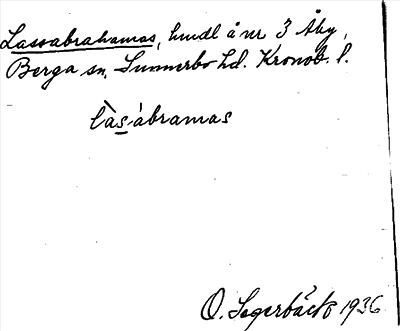 Lassabrahamas, hmdl å nr 3 Åby,
Berga sn, Sunnerbo hd. Kronob. l.
làs ábramas
O. Segerbäck 1936